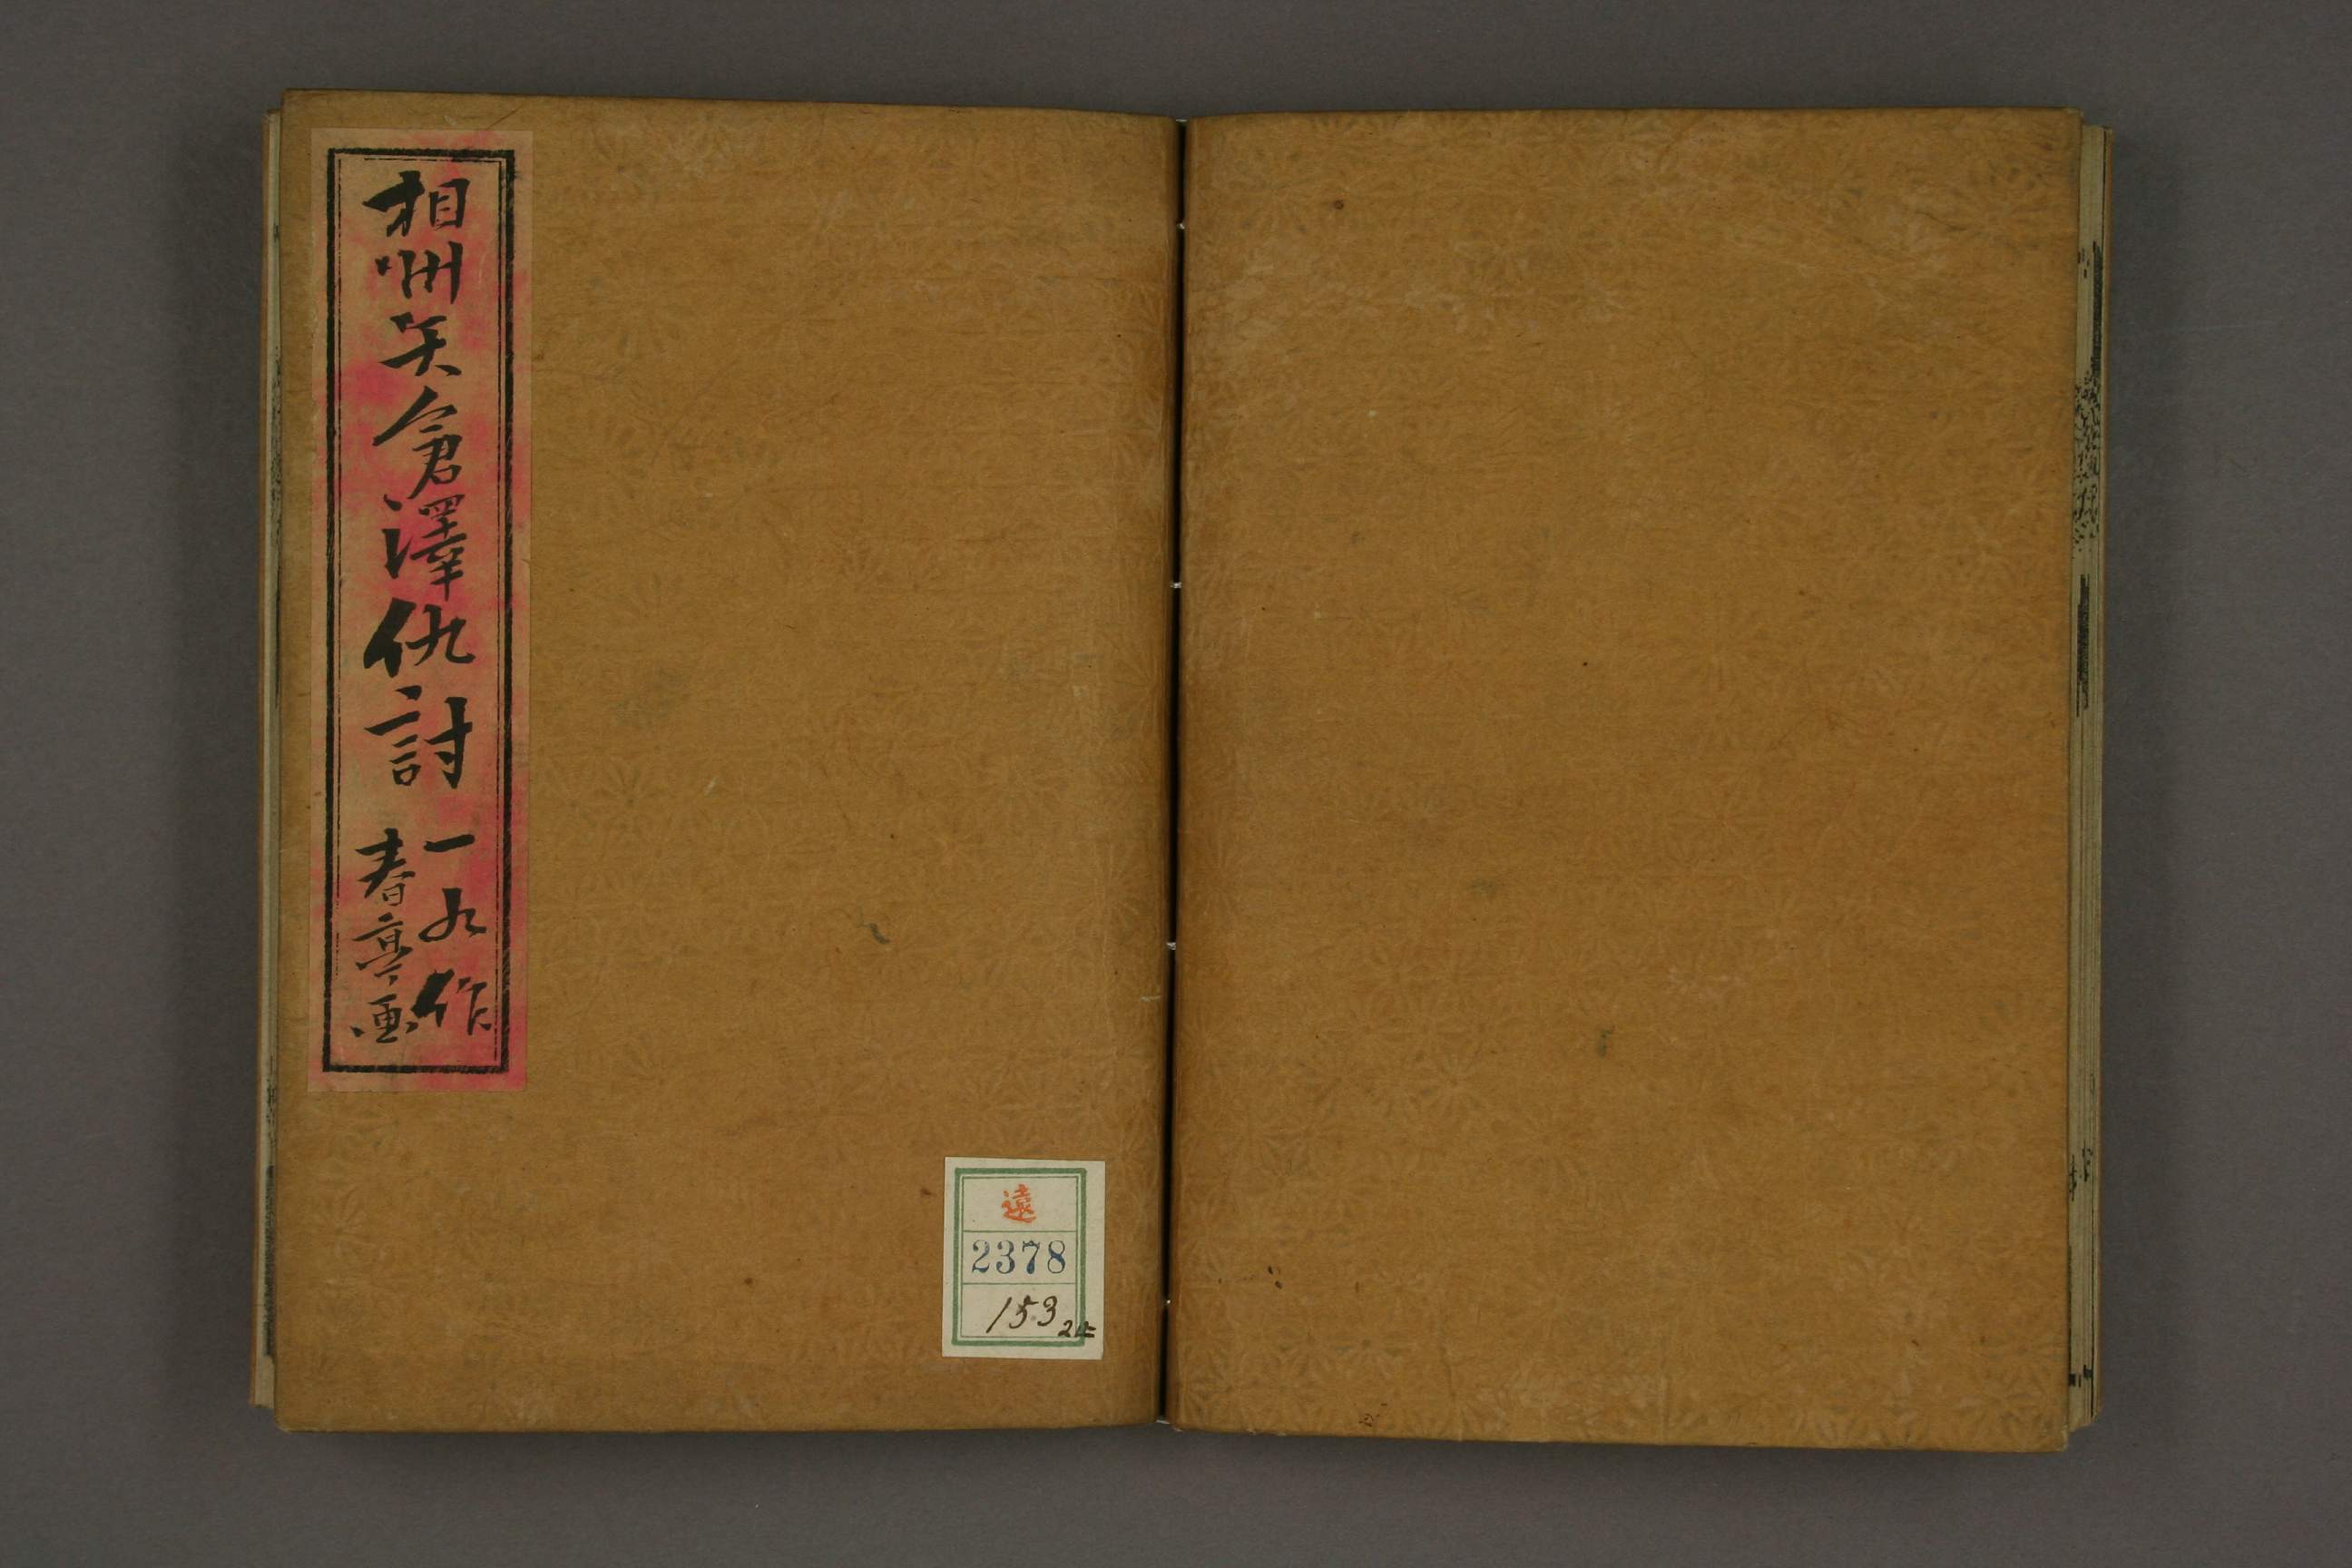 相州矢倉澤仇討
一九作
春亭画
遠
2378
153